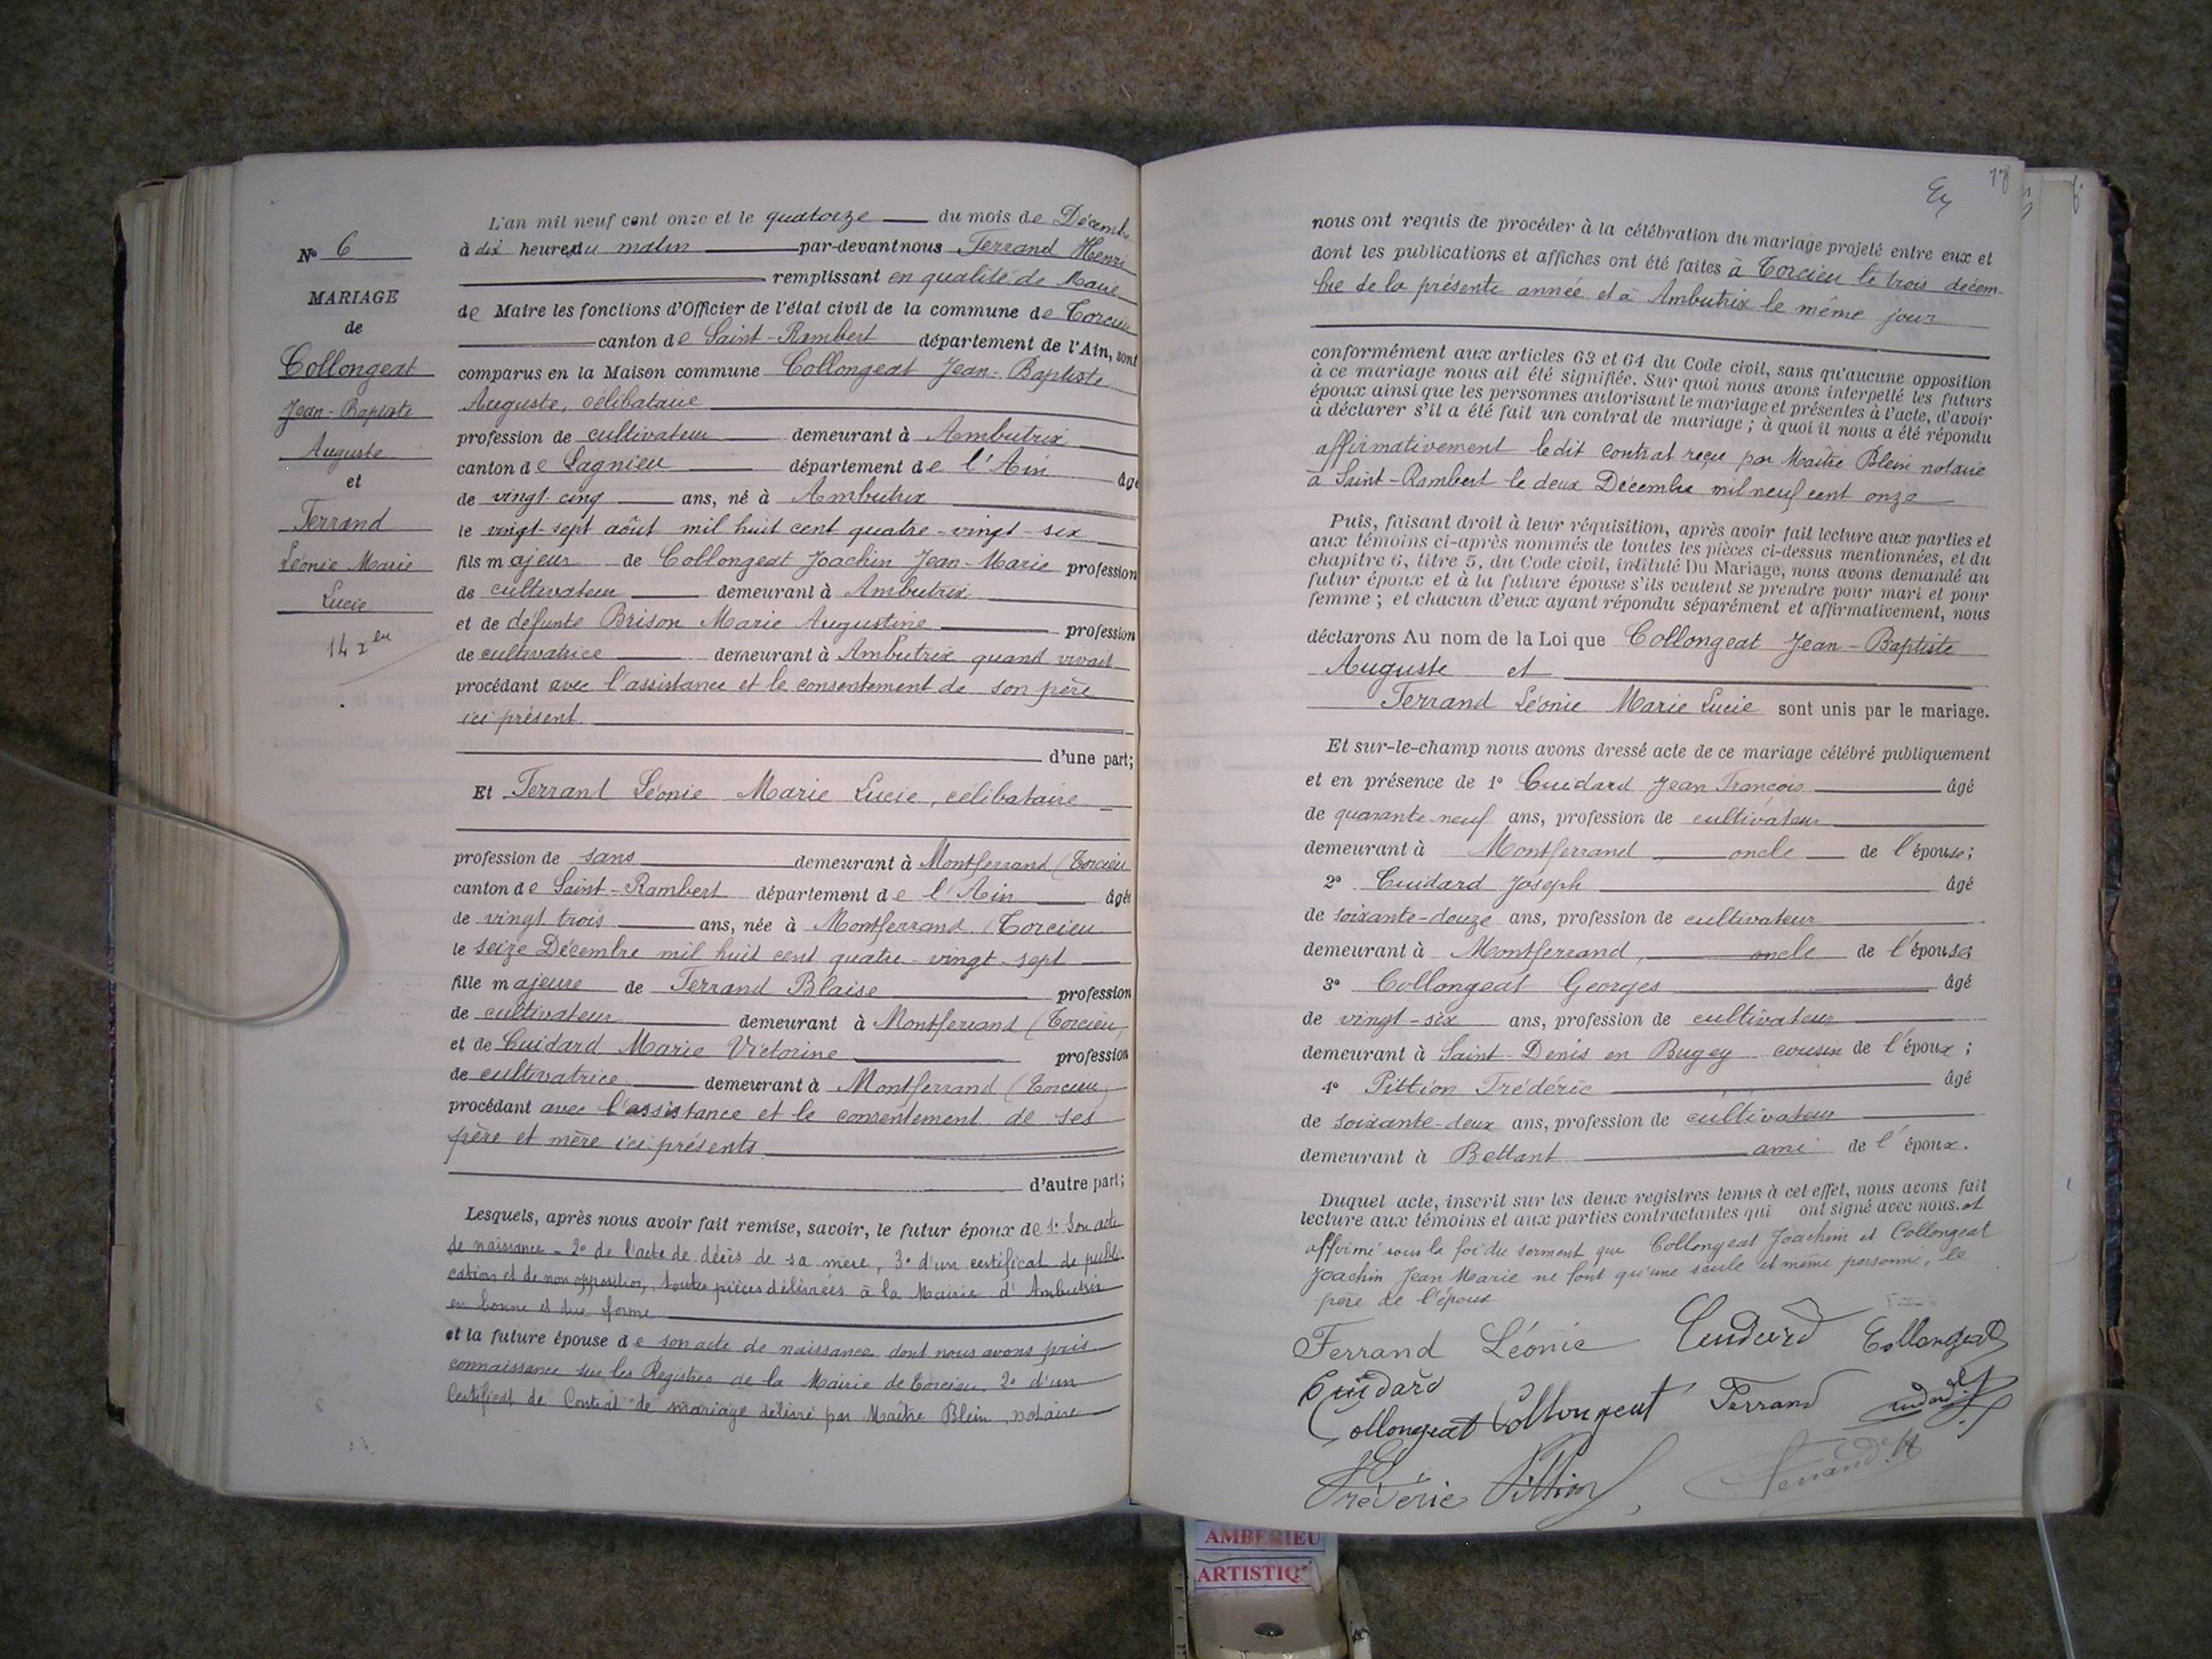 N° 6
MARIAGE
de
Collongeat
Jean-Baptiste
Auguste
et
Ferrand
Léonie Marie
Lucie
14 Xbre
L'an mil neuf cent onze et le quatorze du mois de Décembre
à dix heures du matin par-devant nous Ferrand Henri
remplissant en qualité de Maire
de Maire les fonctions d'Officier de l'état civil de la commune de Torcieu
canton de Saint-Rambert département de l'Ain, sont
comparus en la Maison commune Collongeat Jean-Baptiste
Auguste, célibataire
profession de cultivateur demeurant à Ambutrix
canton de Lagnieu département de l'Ain âgé
de vingt-cinq ans, né à Ambutrix
le vingt-sept août mil huit cent quatre-vingt-six
fils majeur de Collongeat Joachin Jean-Marie profession
de cultivateur demeurant à Ambutrix
et de défunte Brison Marie Augustine profession
de cultivatrice demeurant à Ambutrix quand vivait
procédant avec l'assistance et le consentement de son père
ici présent
d'une part;
Et Ferrand Léonie Marie Lucie, célibataire
profession de sans demeurant à Montferrand (Torcieu
canton de Saint-Rambert département de l'Ain âgée
de vingt trois ans, née à Montferrand (Torcieu
le seize Décembre mil huit cent quatre-vingt-sept
fille majeure de Ferrand Blaise profession
de cultivateur demeurant à Montferrand (Torcieu)
et de Cuidard Marie Victorine profession
de cultivatrice demeurant à Montferrand (Torcieu)
procédant avec l'assistance et le consentement de ses
père et mère ici présents
d'autre part;
Lesquels, après nous avoir fait remise, savoir, le futur époux de 1° Son acte
de naissance - 2° de l'acte de décès de sa mère, 3° d'un certificat de publi-
cation et de non opposition, toutes pièces délivrées à la Mairie d'Ambutrix
en bonne et due forme
et la future épouse de son acte de naissance dont nous avons pris
connaissance sur les Registres de la Mairie de Torcieu, 2° d'un
Certificat de Contrat de mariage délivré par Maître Blein, notaire
78
nous ont requis de procéder à la célébration du mariage projeté entre eux et
dont les publications et affiches ont été faites à Torcieu le trois décem-
bre de la présente année et à Ambutrix le même jour
conformément aux articles 63 et 64 du Code civil, sans qu'aucune opposition
à ce mariage nous ait été signifiée. Sur quoi nous avons interpellé les futurs
époux ainsi que les personnes autorisant le mariage et présentes à l'acte, d'avoir
à déclarer s'il a été fait un contrat de mariage; à quoi il nous a été répondu
affirmativement ledit contrat reçu par Maître Blein notaire
à Saint-Rambert le deux Décembre mil neuf cent onze
Puis, faisant droit à leur réquisition, après avoir fait lecture aux parties et
aux témoins ci-après nommés de toutes les pièces ci-dessus mentionnées, et du
chapitre 6, titre 5, du Code civil, intitulé Du Mariage, nous avons demandé au
futur époux et à la future épouse s'ils veulent se prendre pour mari et pour
femme; et chacun d'eux ayant répondu séparément et affirmativement, nous
déclarons Au nom de la Loi que Collongeat Jean-Baptiste
Auguste et
Ferrand Léonie Marie Lucie sont unis par le mariage.
Et sur-le-champ nous avons dressé acte de ce mariage célébré publiquement
et en présence de 1° Cuidard Jean François âgé
de quarante-neuf ans, profession de cultivateur
demeurant à Montferrand oncle de l'épouse;
2° Cuidard Joseph âgé
de soixante-douze ans, profession de cultivateur
demeurant à Montferrand, oncle de l'épouse;
3° Collongeat Georges âgé
de vingt-six ans, profession de cultivateur
demeurant à Saint-Denis en Bugey cousin de l'époux;
4° Pittion Frédéric âgé
de soixante-deux ans, profession de cultivateur
demeurant à Bettant ami de l'époux.
Duquel acte, inscrit sur les deux registres tenus à cet effet, nous avons fait
lecture aux témoins et aux parties contractantes qui ont signé avec nous. et
affirmé sous la foi du serment que Collongeat Joachim et Collongeat
Joachin Jean Marie ne font qu'une seule et même personne, le
père de l'époux
Ferrand Léonie Cuidard Collongeat
Cuidard
Collongeat Collongeat Ferrand
Frédéric Pittion Ferrand H
AMBERIEU
ARTISTIQ